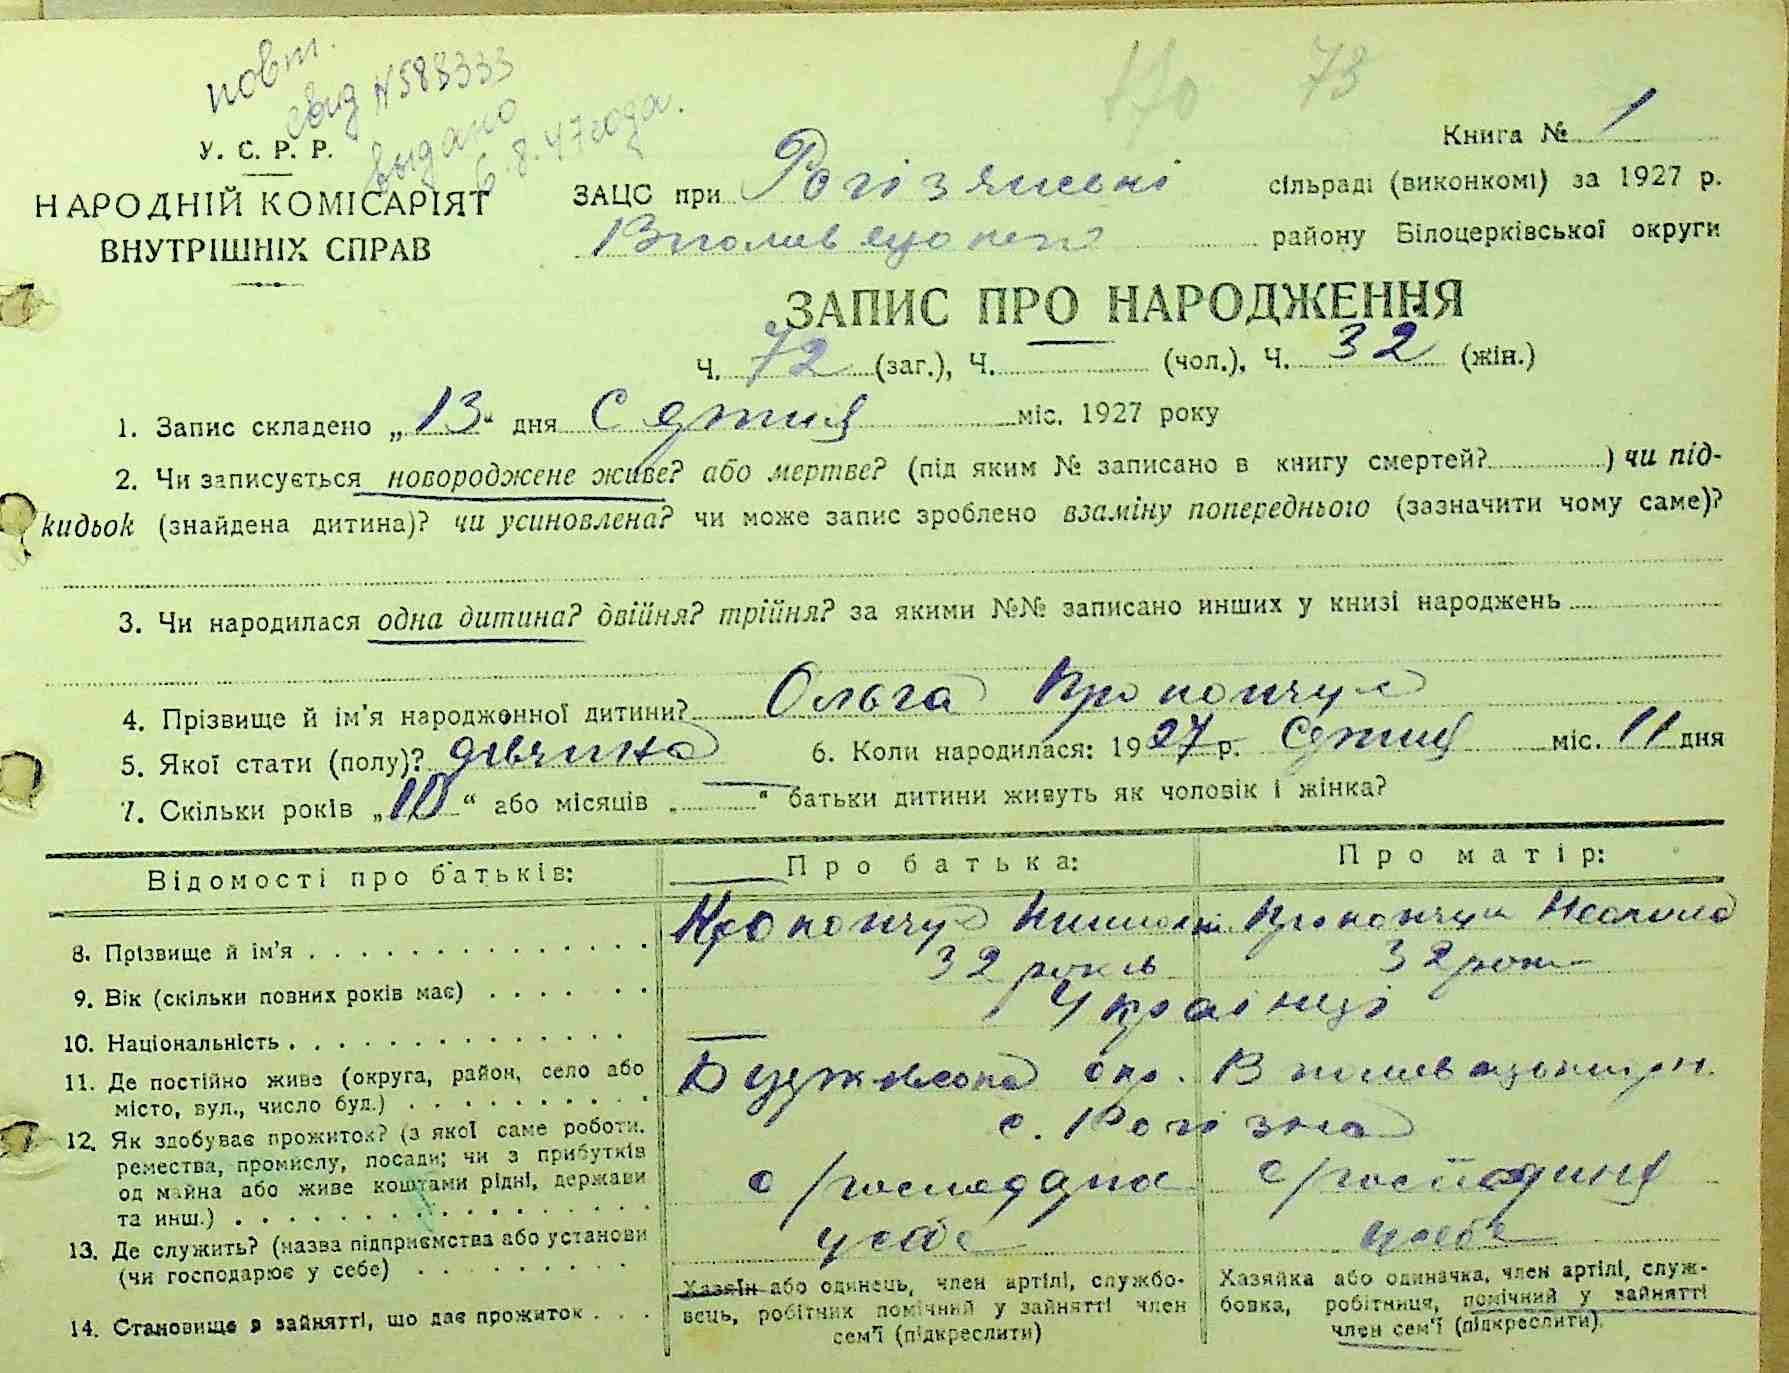 170 73
повт.
свид N 583333
выдано
6.8.47 года.
У. С. Р. Р.
НАРОДНІЙ КОМІСАРІЯТ
ВНУТРІШНІХ СПРАВ
Книга № 1
ЗАЦС при Рогізянські сільраді (виконкомі) за 1927 р.
району Білоцерківської округи
ЗАПИС ПРО НАРОДЖЕННЯ
Ч. 72 (заг.), Ч. (чол.), Ч. 32 (жін.)
1. Запис складено „13" дня Сєтня міс. 1927 року
2. Чи записується новороджене живе? або мертве? (під яким № записано в книгу смертей? ) чи під-
кидьок (знайдена дитина)? чи усиновлена? чи може запис зроблено взаміну попереднього (зазначити чому саме)?
3. Чи народилася одна дитина? двійня? трійня? за якими №№ записано инших у книзі народжень
4. Прізвище й ім'я народженної дитини? Ольга Прокопчук
5. Якої стати (полу)? дівчина 6. Коли народилася: 1927 р. міс. 11 дня
7. Скільки років „10" або місяців „—" батьки дитини живуть як чоловік і жінка?
Відомості про батьків: Про батька: Про матір:
8. Прізвище й ім'я Прокопчук Прокопчук
9. Вік (скільки повних років має) 32 років 32 рок
10. Національність Українці
11. Де постійно живе (округа, район, село або
місто, вул., число буд.) окр.
с. Рогізна
12. Як здобуває прожиток? (з якої саме роботи,
ремества, промислу, посади; чи з прибутків
од майна або живе коштами рідні, держави
та инш.) с/господарка с/господиня
13. Де служить? (назва підприємства або установи
(чи господарює у себе) у себе у себе
14. Становище в зайнятті, що дає прожиток
Хазяїн або одинець, член артілі, службо-
вець, робітник помічний у зайнятті член
сем'ї (підкреслити)
Хазяйка або одиначка, член артілі, служ-
бовка, робітниця, помічний у зайнятті
член сем'ї (підкреслити).